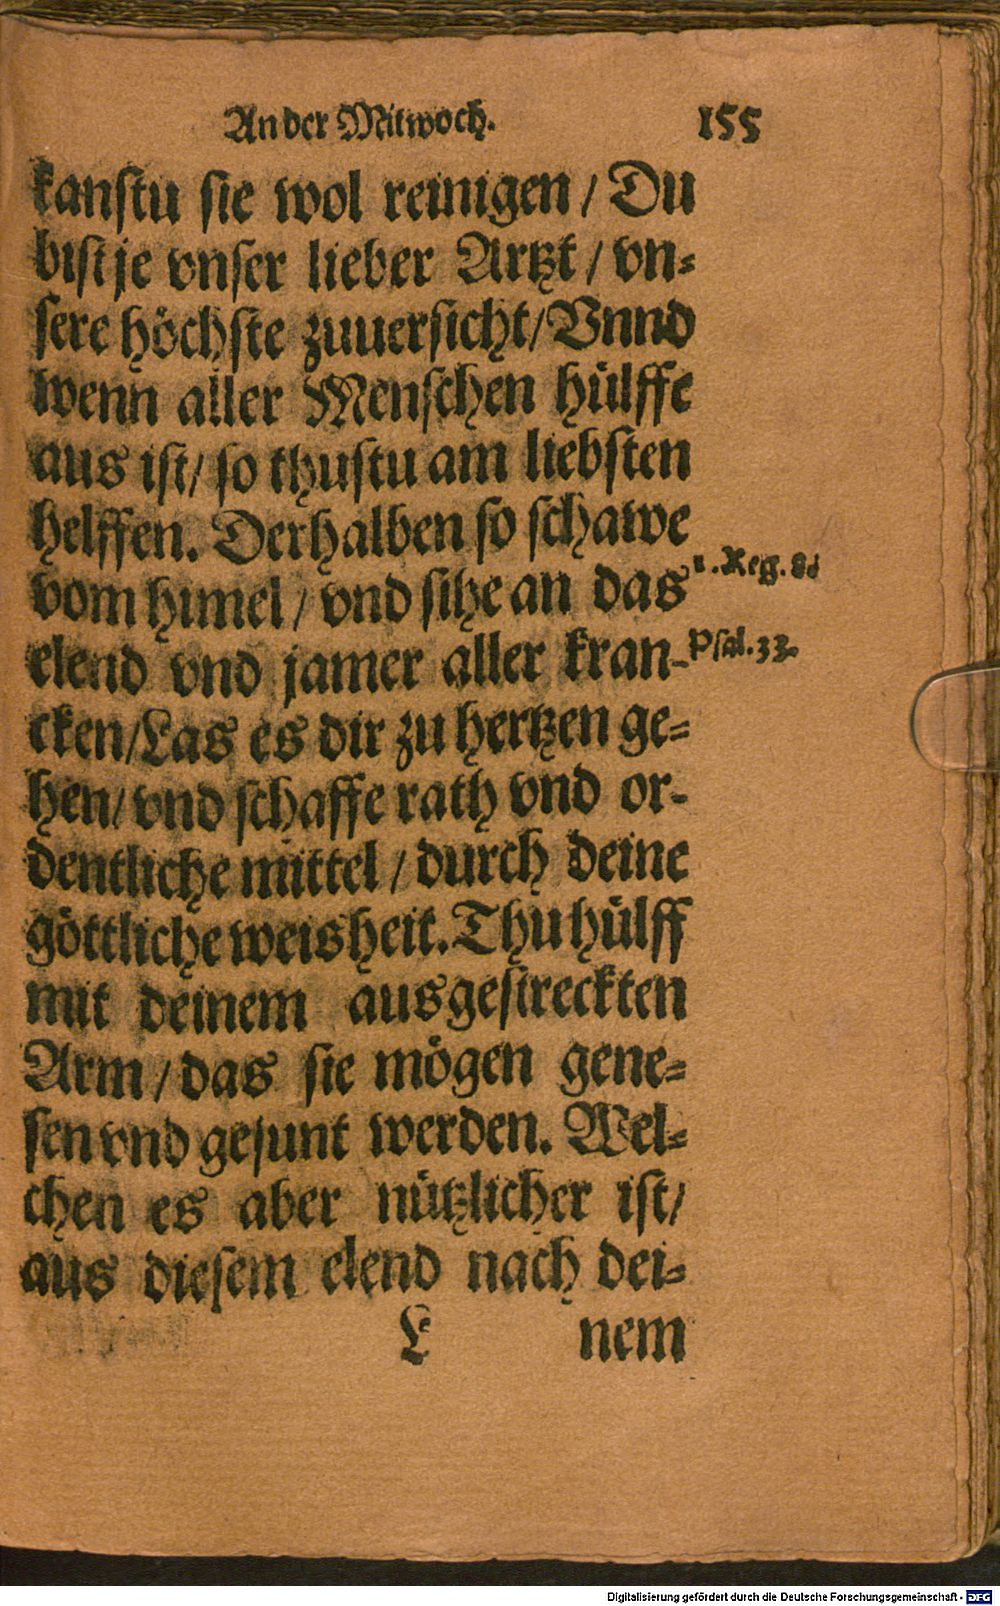 An der Mitwoch. 155
kanſtu ſie wol reinigen / Du
biſt je vnſer lieber Artzt / vn⸗
ſere höchſte zuuerſicht / Vnnd
wenn aller Menſchen hülffe
aus iſt / ſo thuſtu am liebſten
helffen. Derhalben ſo ſchawe
vom himel / vnd ſihe an das
1. Reg. 8.
elend vnd jamer aller kran⸗
Pſal. 33.
cken / Las es dir zu hertzen ge⸗
hen / vnd ſchaffe rath vnd or⸗
dentliche mittel / durch deine
göttliche weisheit. Thu hülff
mit deinem ausgeſtreckten
Arm / das ſie mögen gene⸗
ſen vnd geſunt werden. Wel⸗
chen es aber nützlicher iſt /
aus dieſem elend nach dei⸗
nem
Digitalisierung gefördert durch die Deutsche Forschungsgemeinschaft - DFG